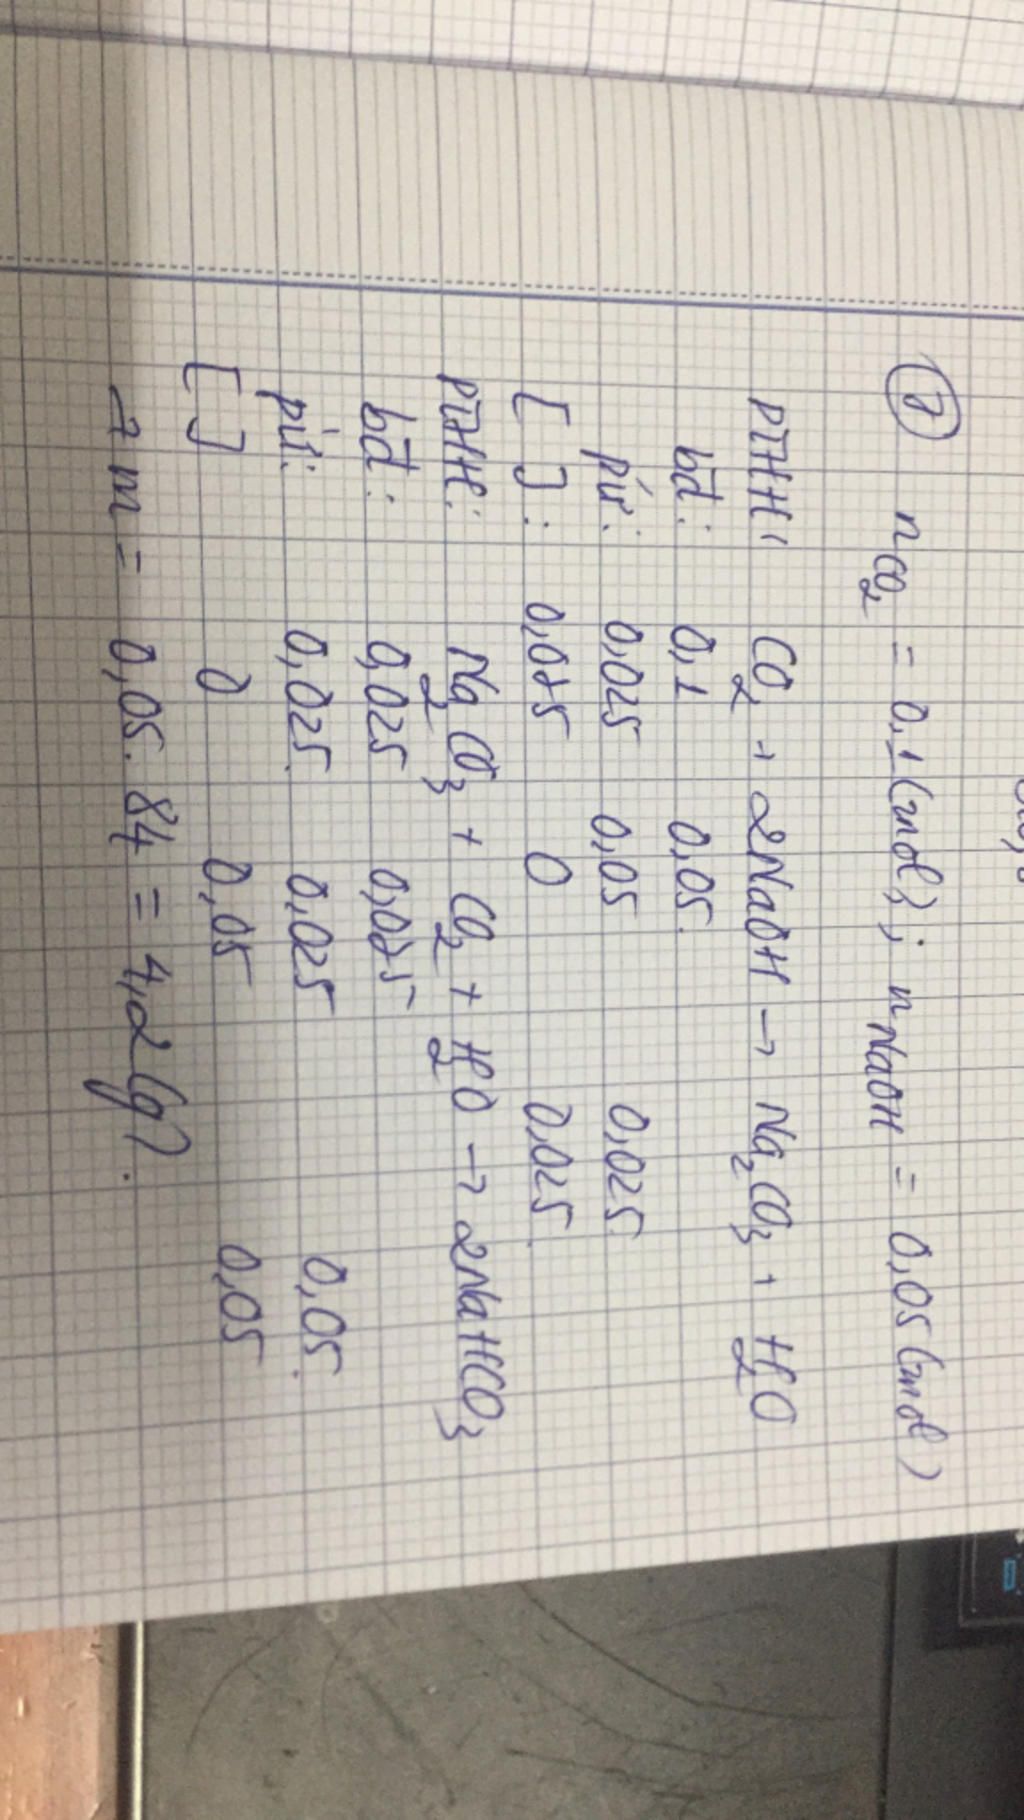 ② nCO2 = 0,1 (mol); nNaOH = 0,05 (mol)
PTHH: CO2 + 2NaOH → Na2CO3 + H2O
bđ: 0,1 0,05.
pứ: 0,025 0,05 0,025
[ ]: 0,075 0 0,025
PTHH: Na2CO3 + CO2 + H2O → 2NaHCO3
bđ: 0,025 0,075
pứ: 0,025 0,025 0,05.
[ ] 0 0,05 0,05
→ m = 0,05.84 = 4,2 (g).